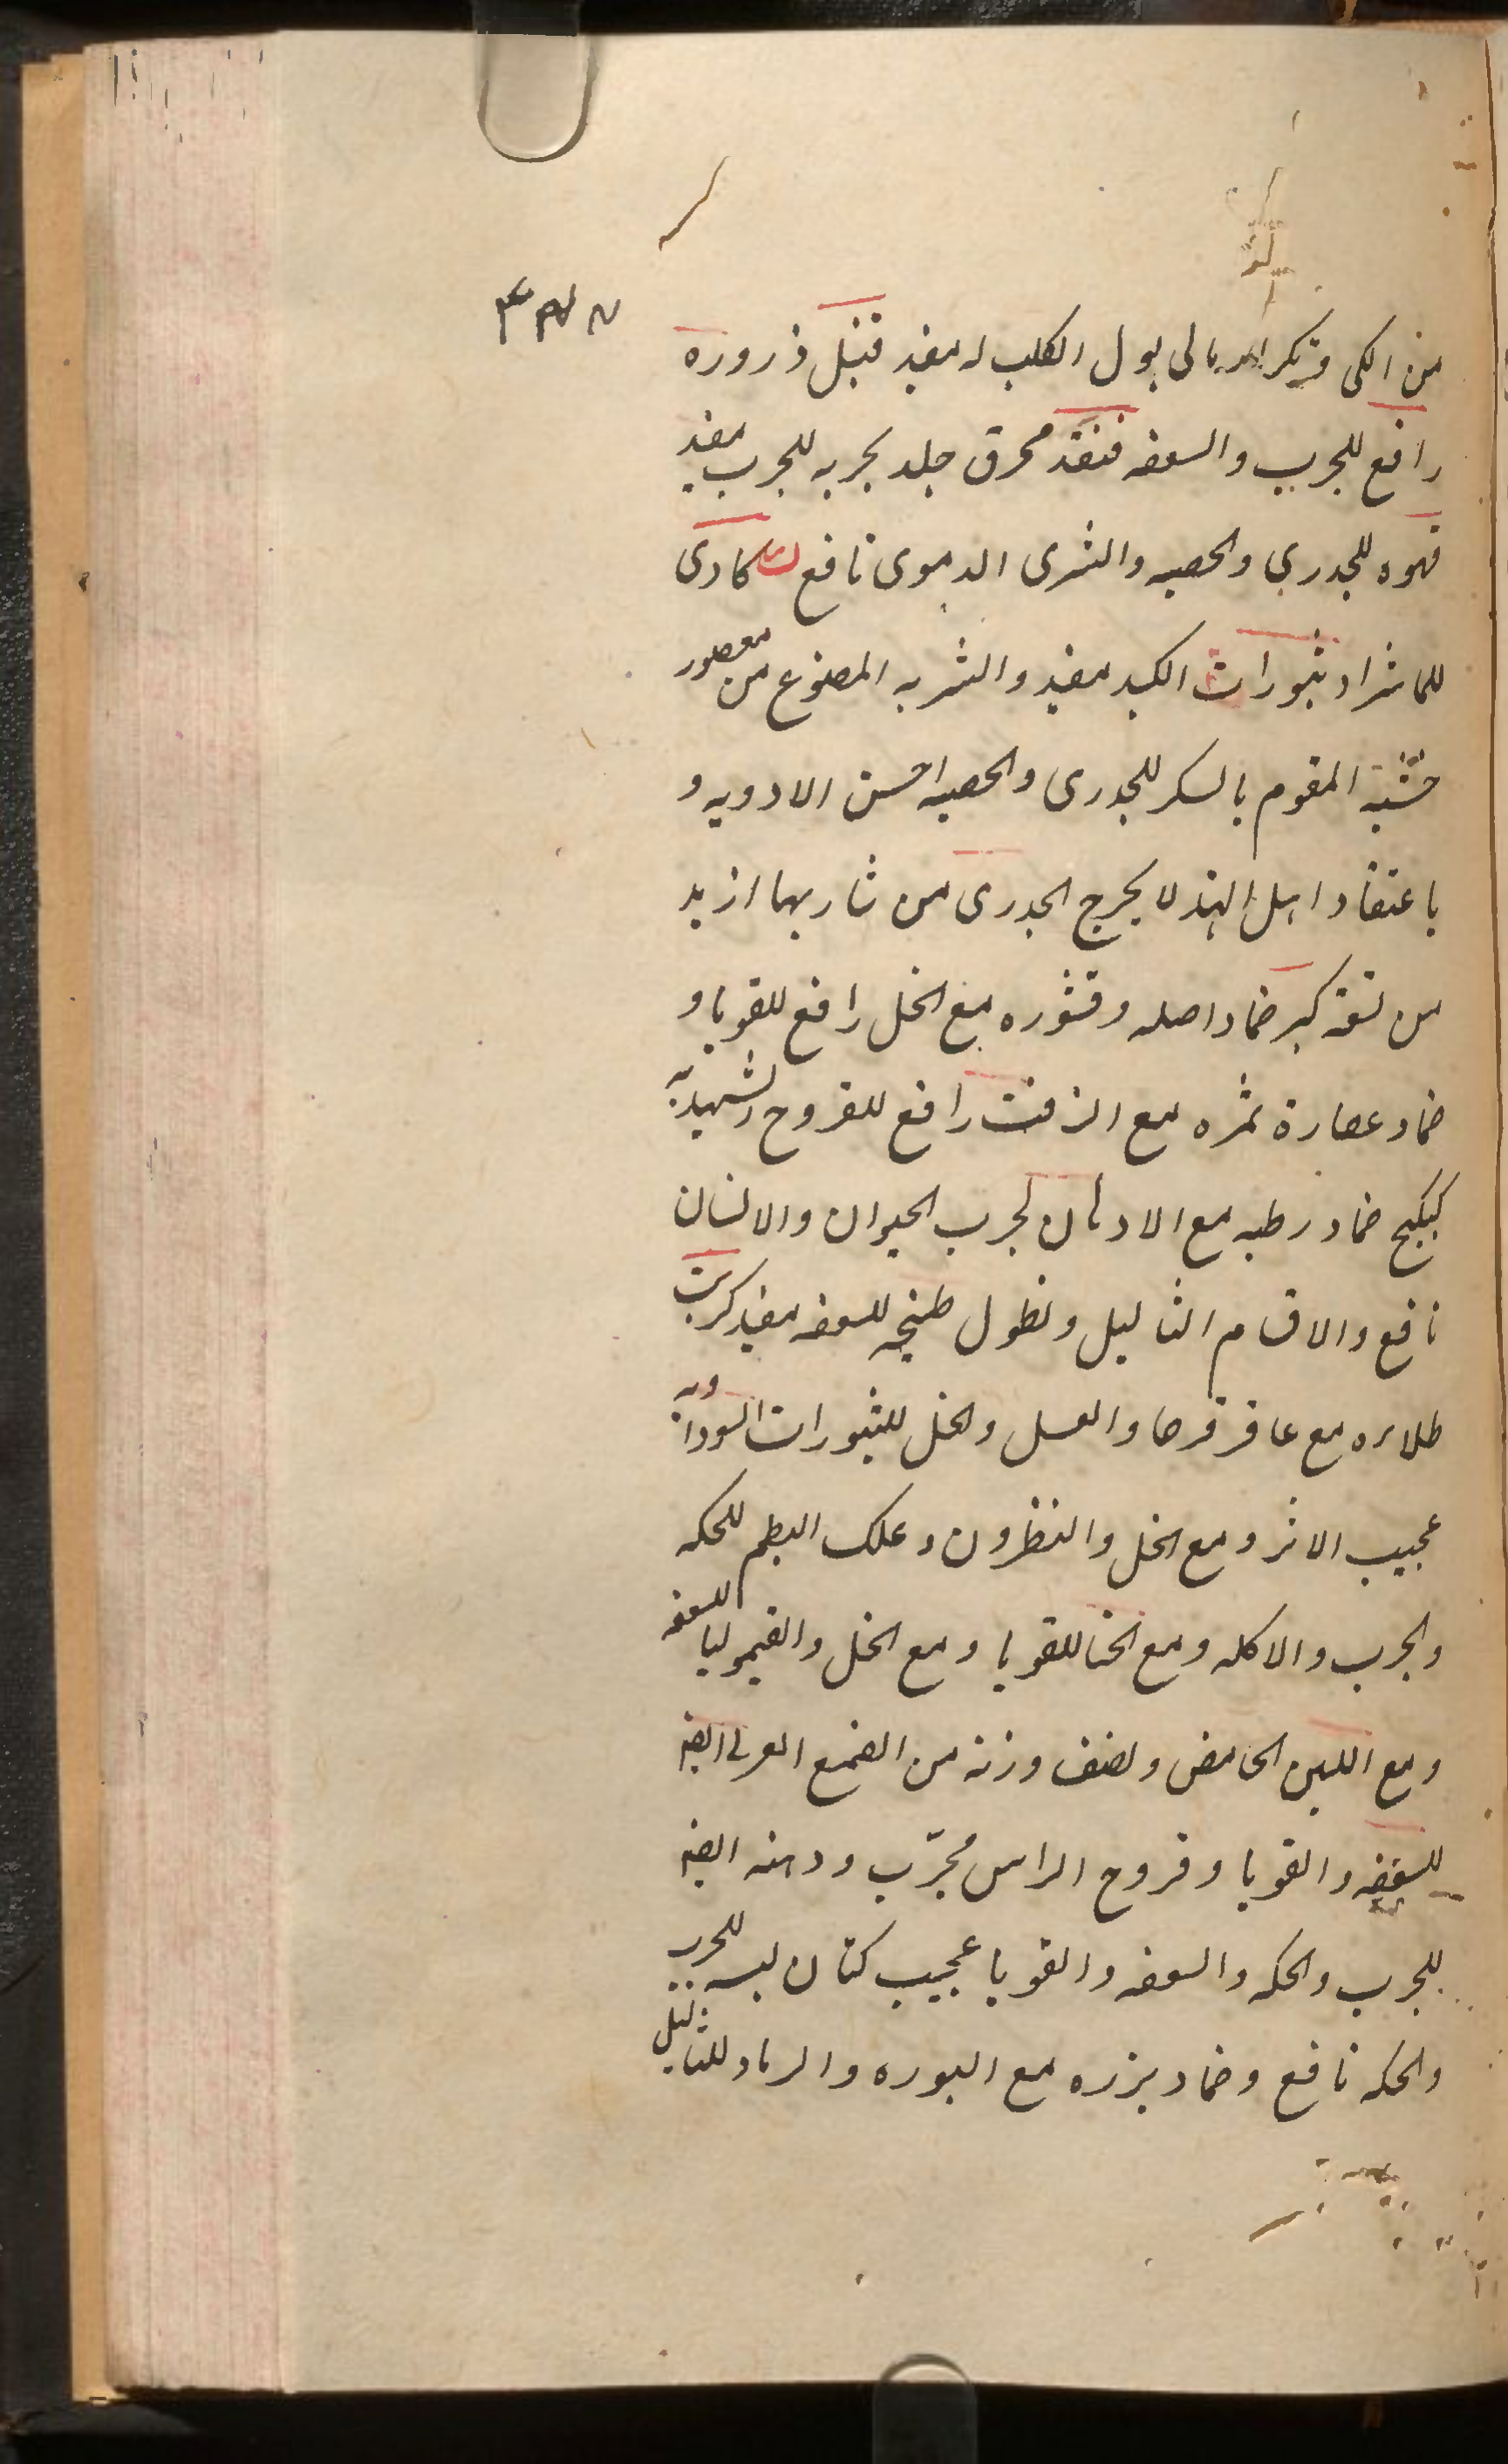 من الكى وتكرار بالى بول الكلب له مفيد قنبل ذروره
رافع للجرب والسعفه قنفذ محرق جلد بحريه للجرب مفيد
قهوه للجدري والحصبه والشرى الدموى نافع كادى
للماشرا وبثورات الكبد مفيد والشربه المصنوع من معصور
خشبة المقوم بالسكر للجدرى والحصبه احسن الادويه و
باعتقاد اهل الهند لا يخرج الجدرى من شاربها ازيد
من تسعة كبر ضماد اصله وقشوره مع الخل رافع للقوبا و
ضماد عصارة ثمره مع الزفت رافع للقروح الشهديه
كبيكج ضماد رطبه مع الادهان لجرب الحيوان والانسان
نافع والاقسام الثاليل ونطول طبيخه للسعفه مفيد كبريت
طلاءه مع عاقرقرحا والعسل والخل للبثورات السوداويه
عجيب الاثر ومع الخل والنطرون وعلك البطم للحكه
والجرب والاكله ومع الحنا للقوبا ومع الخل والقيموليا للسعفه
ومع اللبن الحامض ونصف وزنه من الصمغ العربى ايضا
للسعفه والقوبا وقروح الراس مجرّب ودهنه ايضا
للجرب والحكه والسعفه والقوبا عجيب كتان لبسه للجرب
والحكه نافع وضماد بزره مع البوره والرماد للثاليل